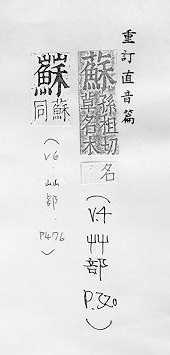 重訂直音篇
蘇 孫租切
草名木
名
(V.4 艸部 P.320)
蘇 蘇同
(V6 艸部 P476)